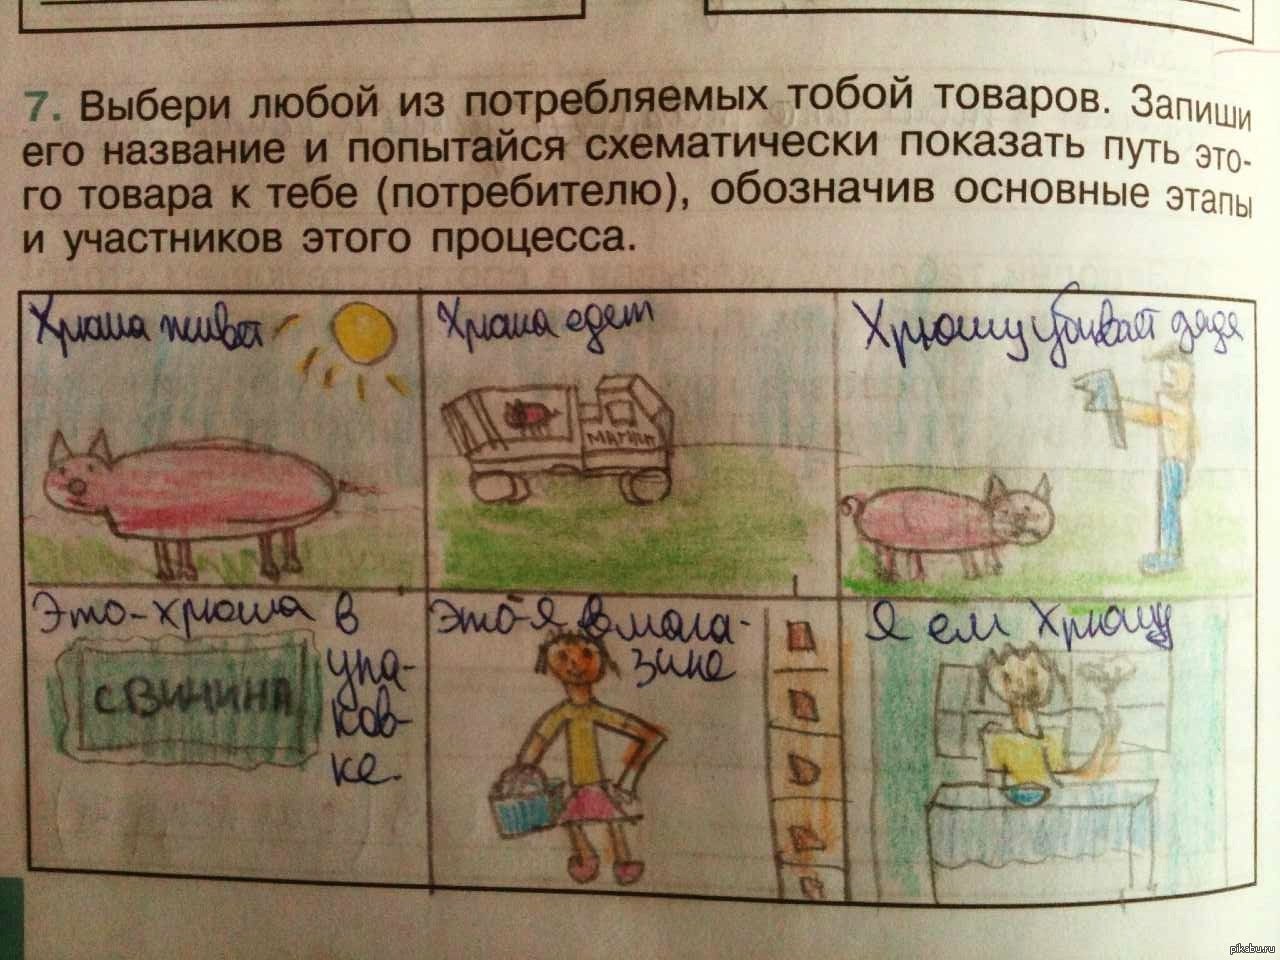 7. Выбери любой из потребляемых тобой товаров. Запиши
его название и попытайся схематически показать путь это-
го товара к тебе (потребителю), обозначив основные этапы
и участников этого процесса.
Хрюша живет
Хрюша едет
Хрюшу убивает дядя
МАГНИТ
Это-хрюша в
упа-
ков-
ке.
СВИНИНА
Это-я в мага-
зине
Я ем Хрюшу
pikabu.ru